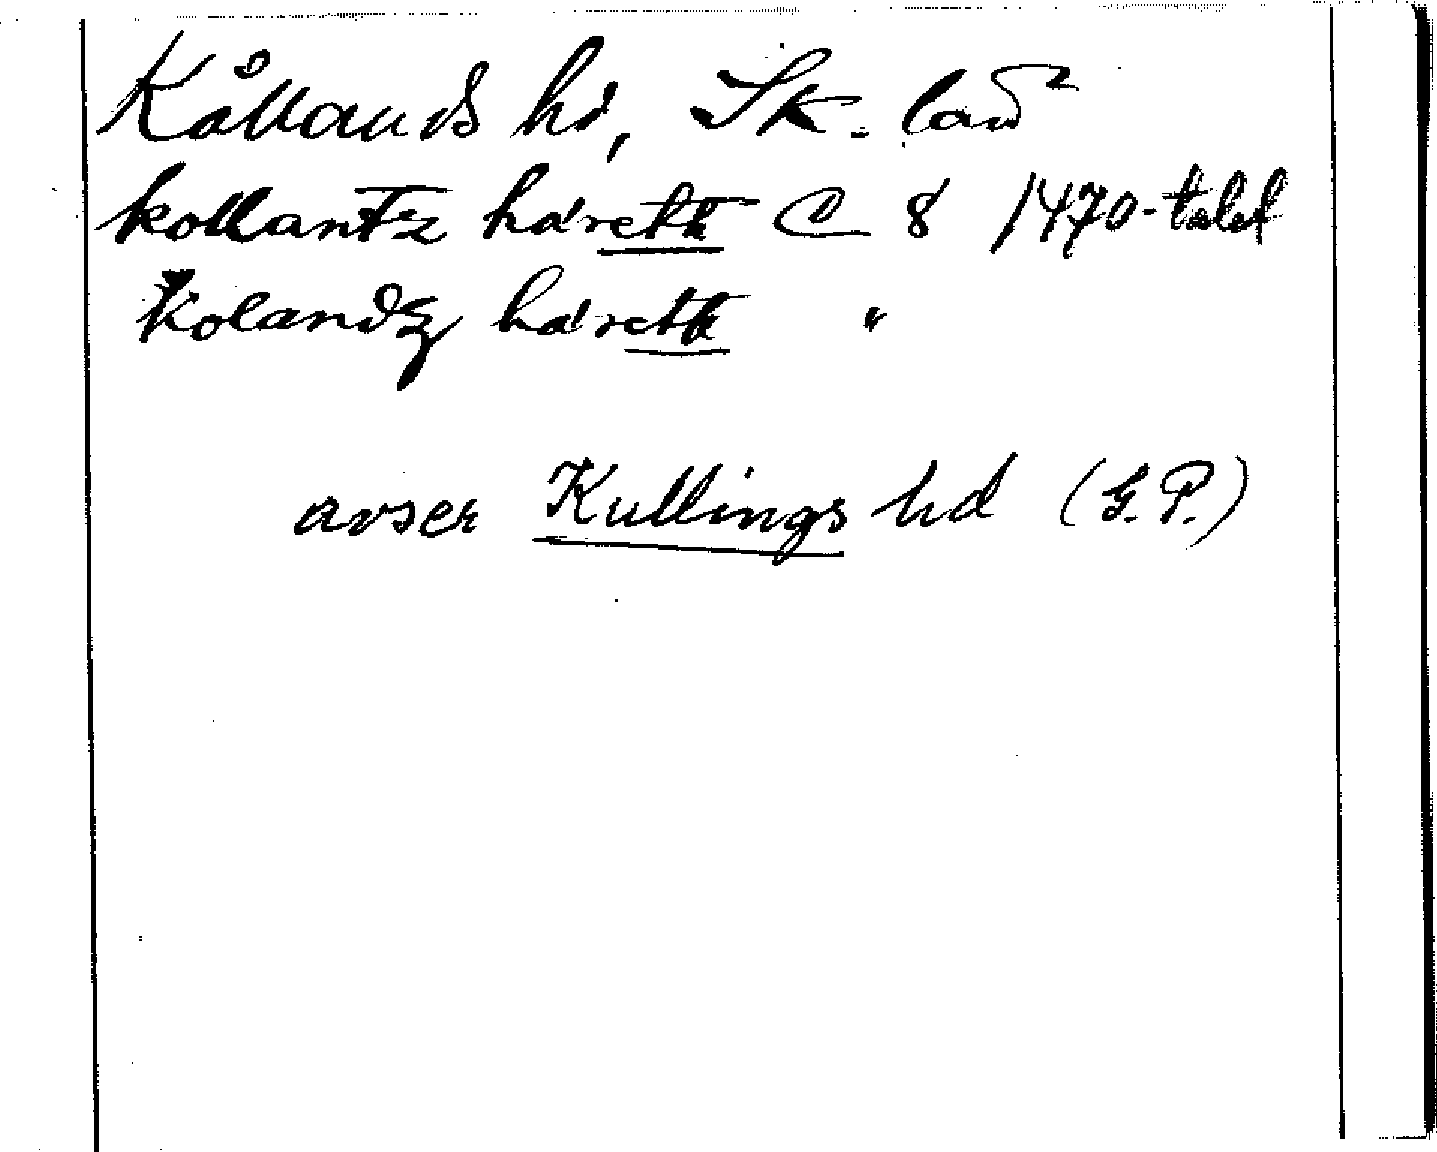 Kållands hd, Sk. län
kollantz häreth C 8 1470-talet
Kolandz häreth "
avser Kullings hd (G.P.)